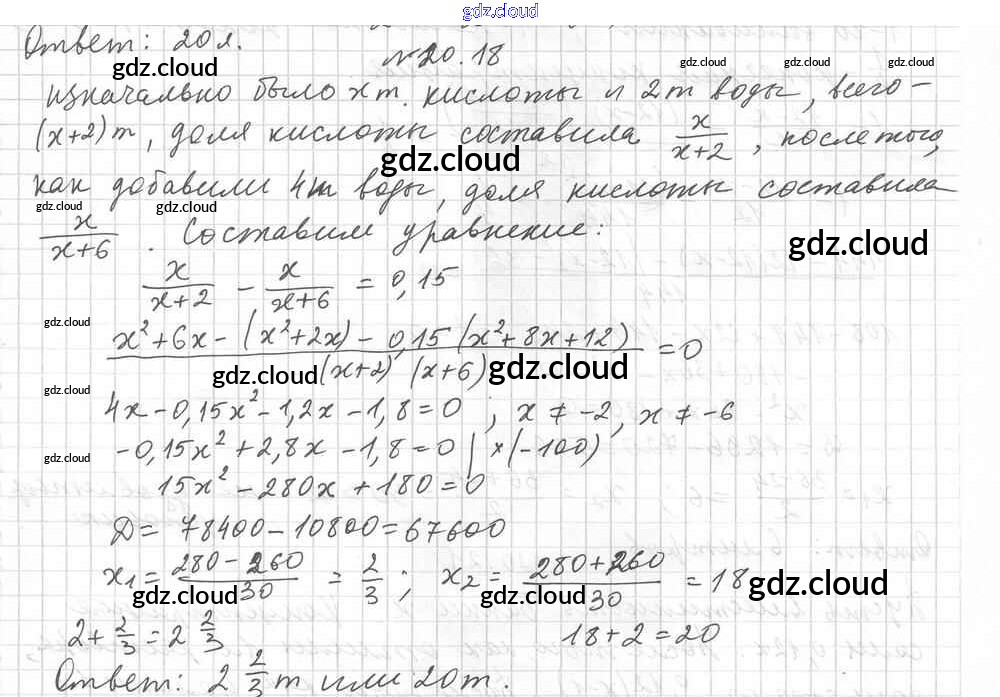 gdz.cloud
Ответ: 20 л.
№20.18
gdz.cloud gdz.cloud gdz.cloud gdz.cloud
изначально было x т. кислоты и 2 т воды, всего –
(x+2) т, доля кислоты составила x/(x+2), после того,
gdz.cloud
как добавили 4 т воды, доля кислоты составила
gdz.cloud gdz.cloud
x/(x+6). Составим уравнение:
gdz.cloud
x/(x+2) - x/(x+6) = 0,15
gdz.cloud
(x²+6x-(x²+2x)-0,15(x²+8x+12))/((x+2)(x+6)) = 0
gdz.cloud gdz.cloud
gdz.cloud
4x-0,15x²-1,2x-1,8=0 ; x ≠ -2, x ≠ -6
-0,15x²+2,8x-1,8=0 | ×(-100)
gdz.cloud
15x²-280x+180=0
Д= 78400-10800=67600
x₁= (280-260)/30 = 2/3 ; x₂= (280+260)/30 = 18
gdz.cloud gdz.cloud gdz.cloud
2+2/3=2 2/3 18+2=20
Ответ: 2 2/3 т или 20 т.